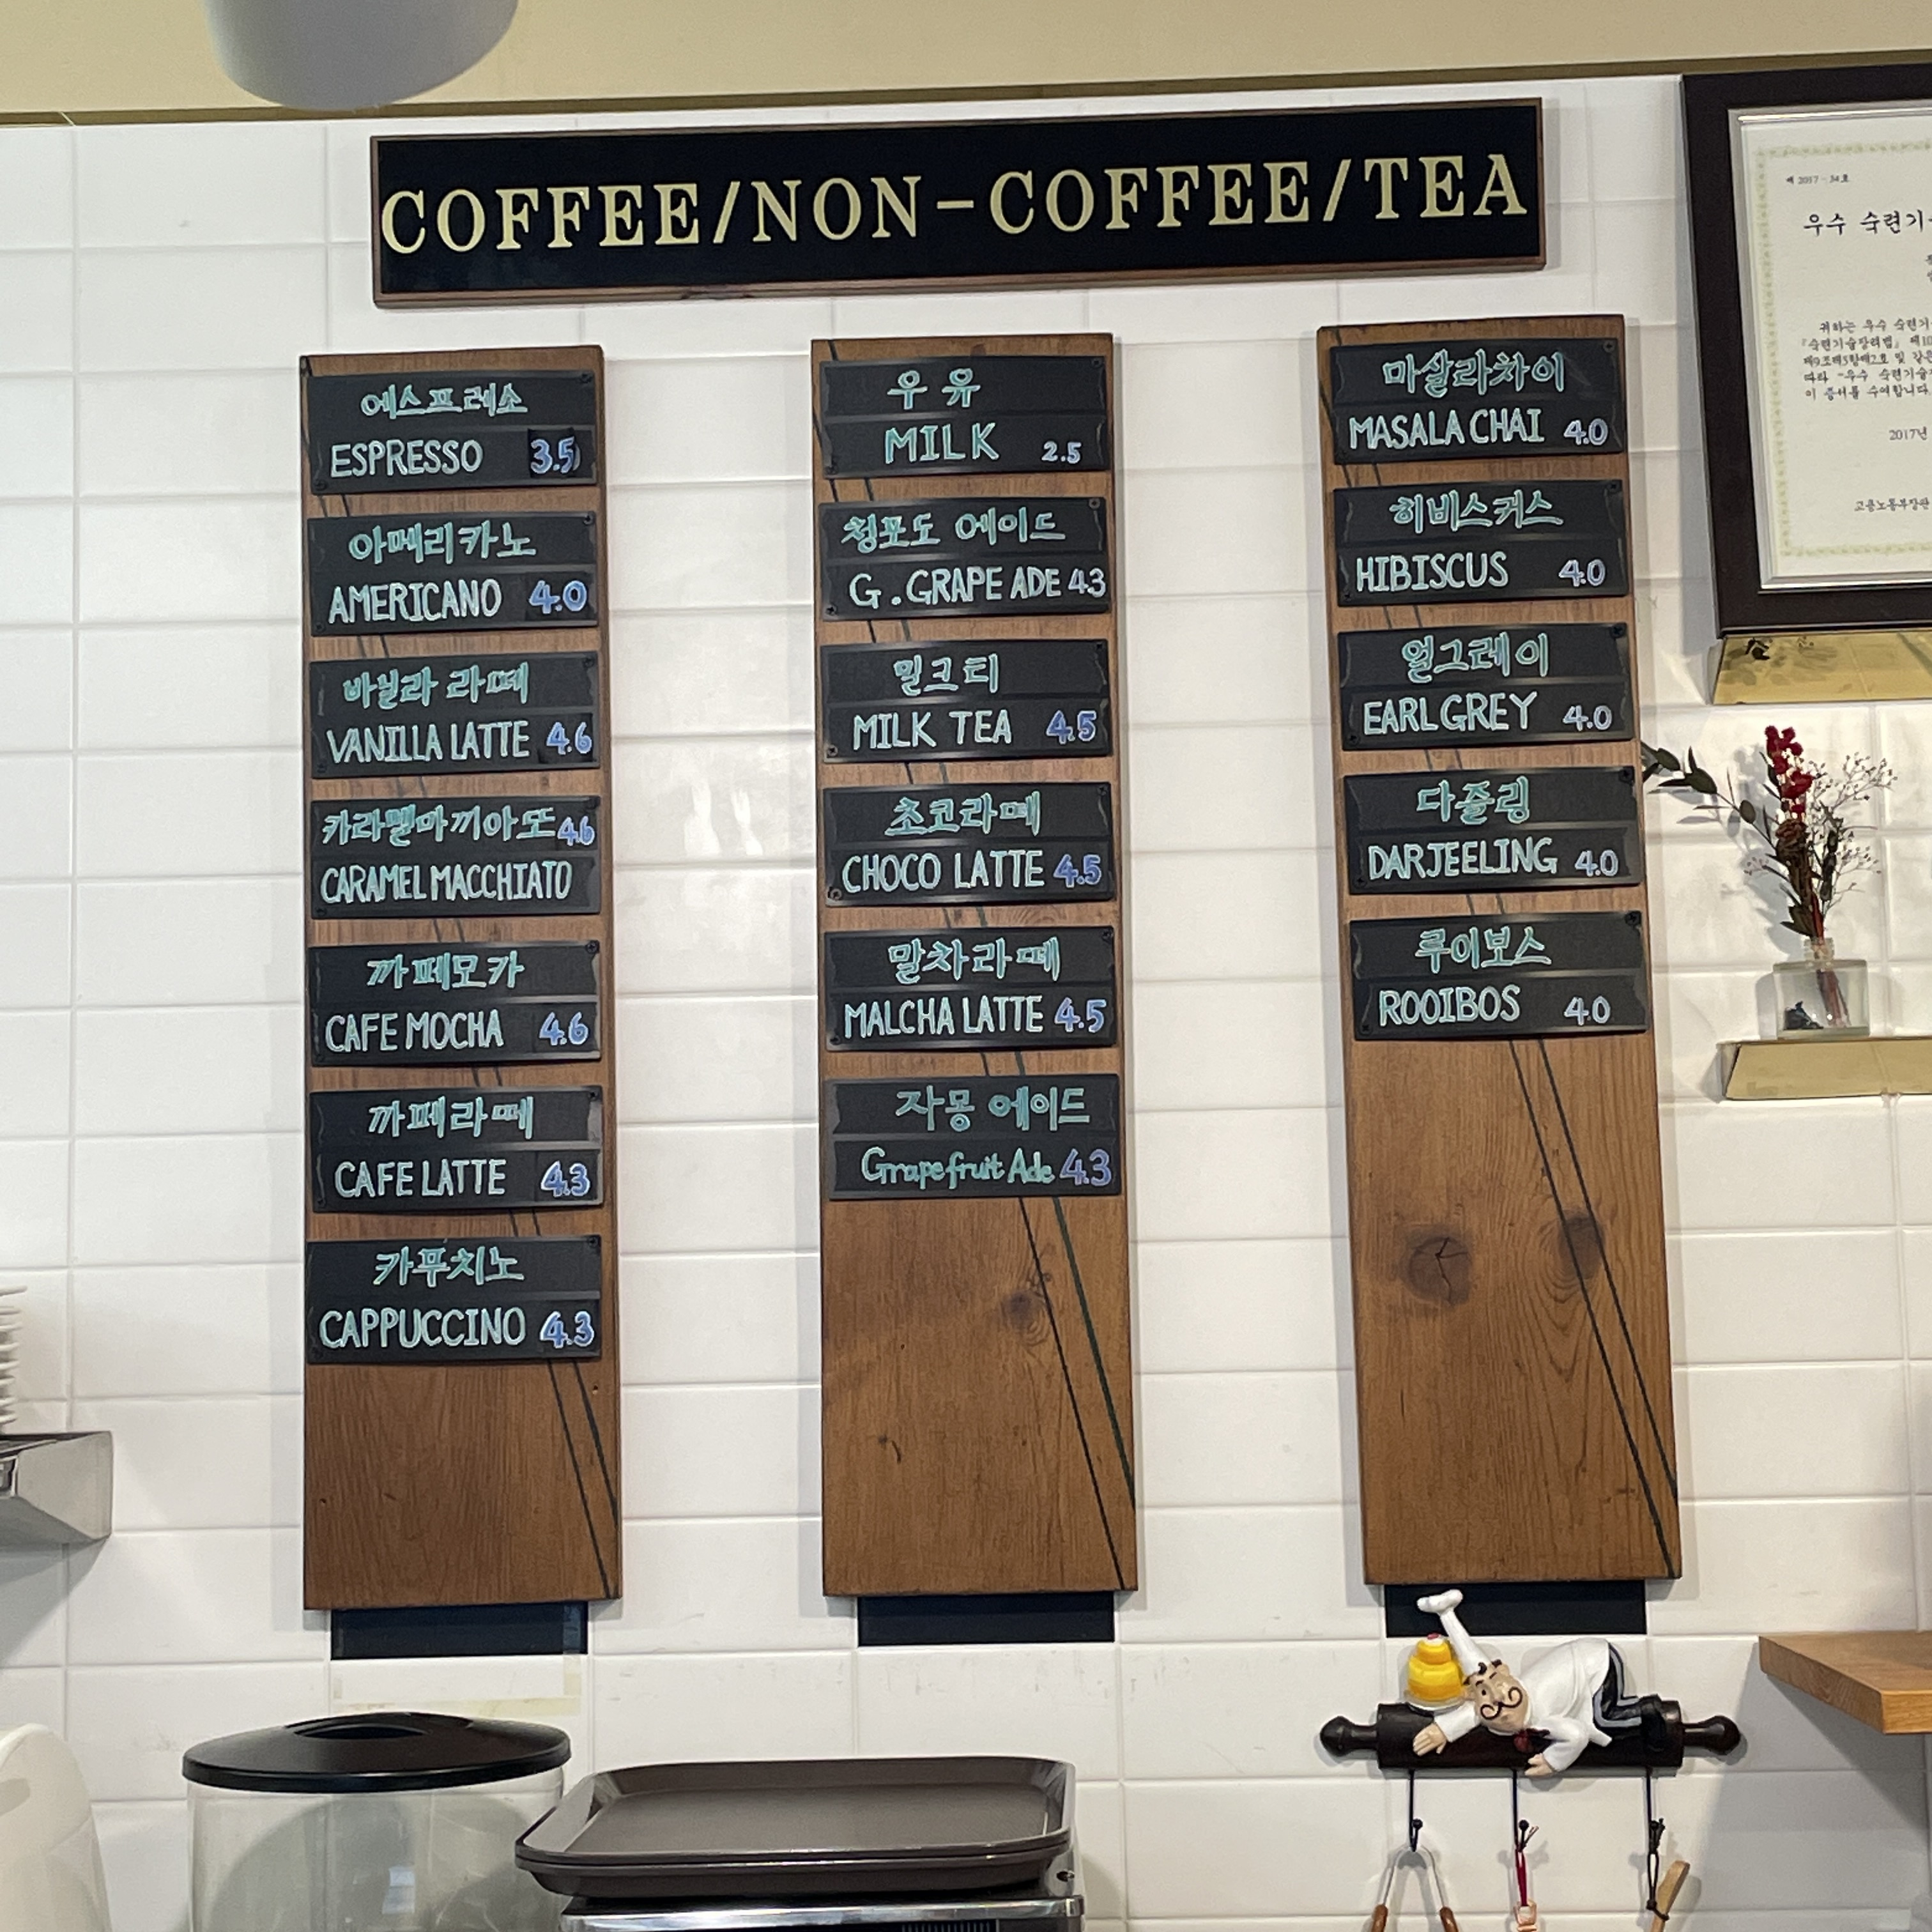 COFFEE/NON-COFFEE/TEA
에스프레소
ESPRESSO 3.5
아메리카노
AMERICANO 4.0
바닐라 라떼
VANILLA LATTE 4.6
카라멜마끼아또 4.6
CARAMEL MACCHIATO
까페모카
CAFE MOCHA 4.6
까페라떼
CAFE LATTE 4.3
카푸치노
CAPPUCCINO 4.3
우유
MILK 2.5
청포도 에이드
G.GRAPE ADE 4.3
밀크티
MILK TEA 4.5
초코라떼
CHOCO LATTE 4.5
말차라떼
MALCHA LATTE 4.5
자몽 에이드
Grapefruit Ade 4.3
마살라차이
MASALA CHAI 4.0
히비스커스
HIBISCUS 4.0
얼그레이
EARL GREY 4.0
다즐링
DARJEELING 4.0
루이보스
ROOIBOS 4.0
제 2017-34호
우수 숙련기
귀하는 우수 숙련기
「숙련기술장려법」 제10
제9조제3항제2호 및 같은
따라 "우수 숙련기술
이 증서를 수여합니다.
2017년
고용노동부장관